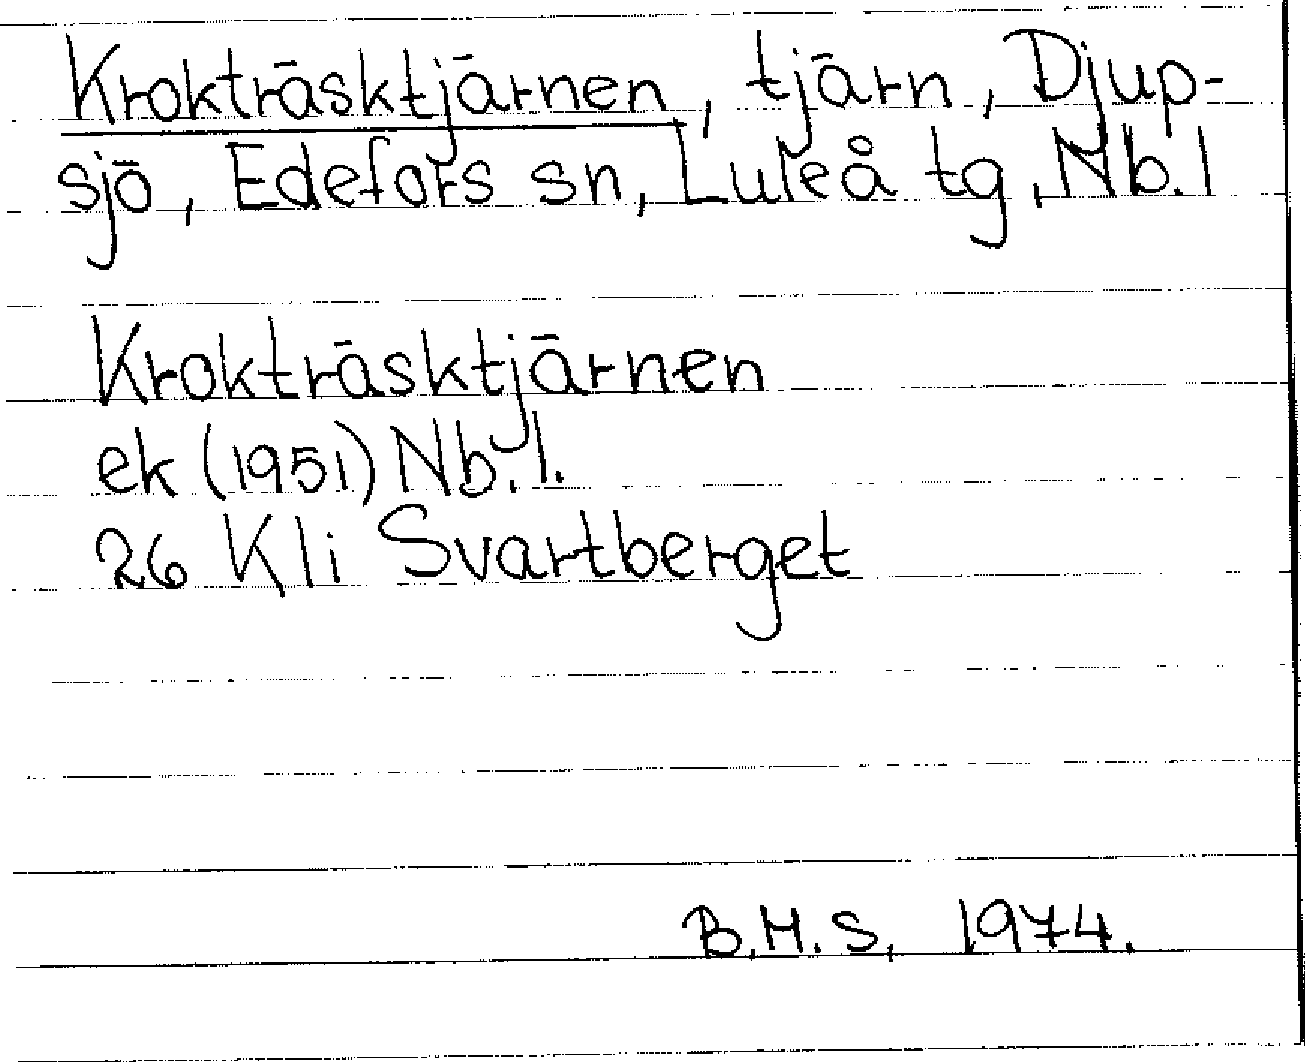 Krokträsktjärnen, tjärn, Djup-
sjö, Edefors sn, Luleå tg, Nb. l
Krokträsktjärnen
ek (1951) Nb. l.
26 Kli Svartberget
B.M.S, 1974.